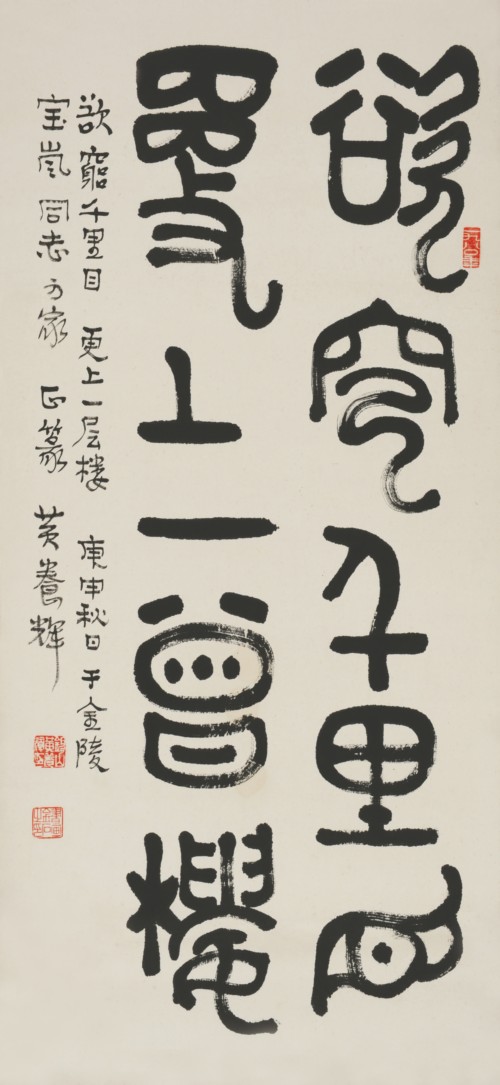 欲穷千里目
更上一曾楼
欲穷千里目 更上一层楼 庚申秋日于金陵
宝岚同志方家正篆 黄养辉